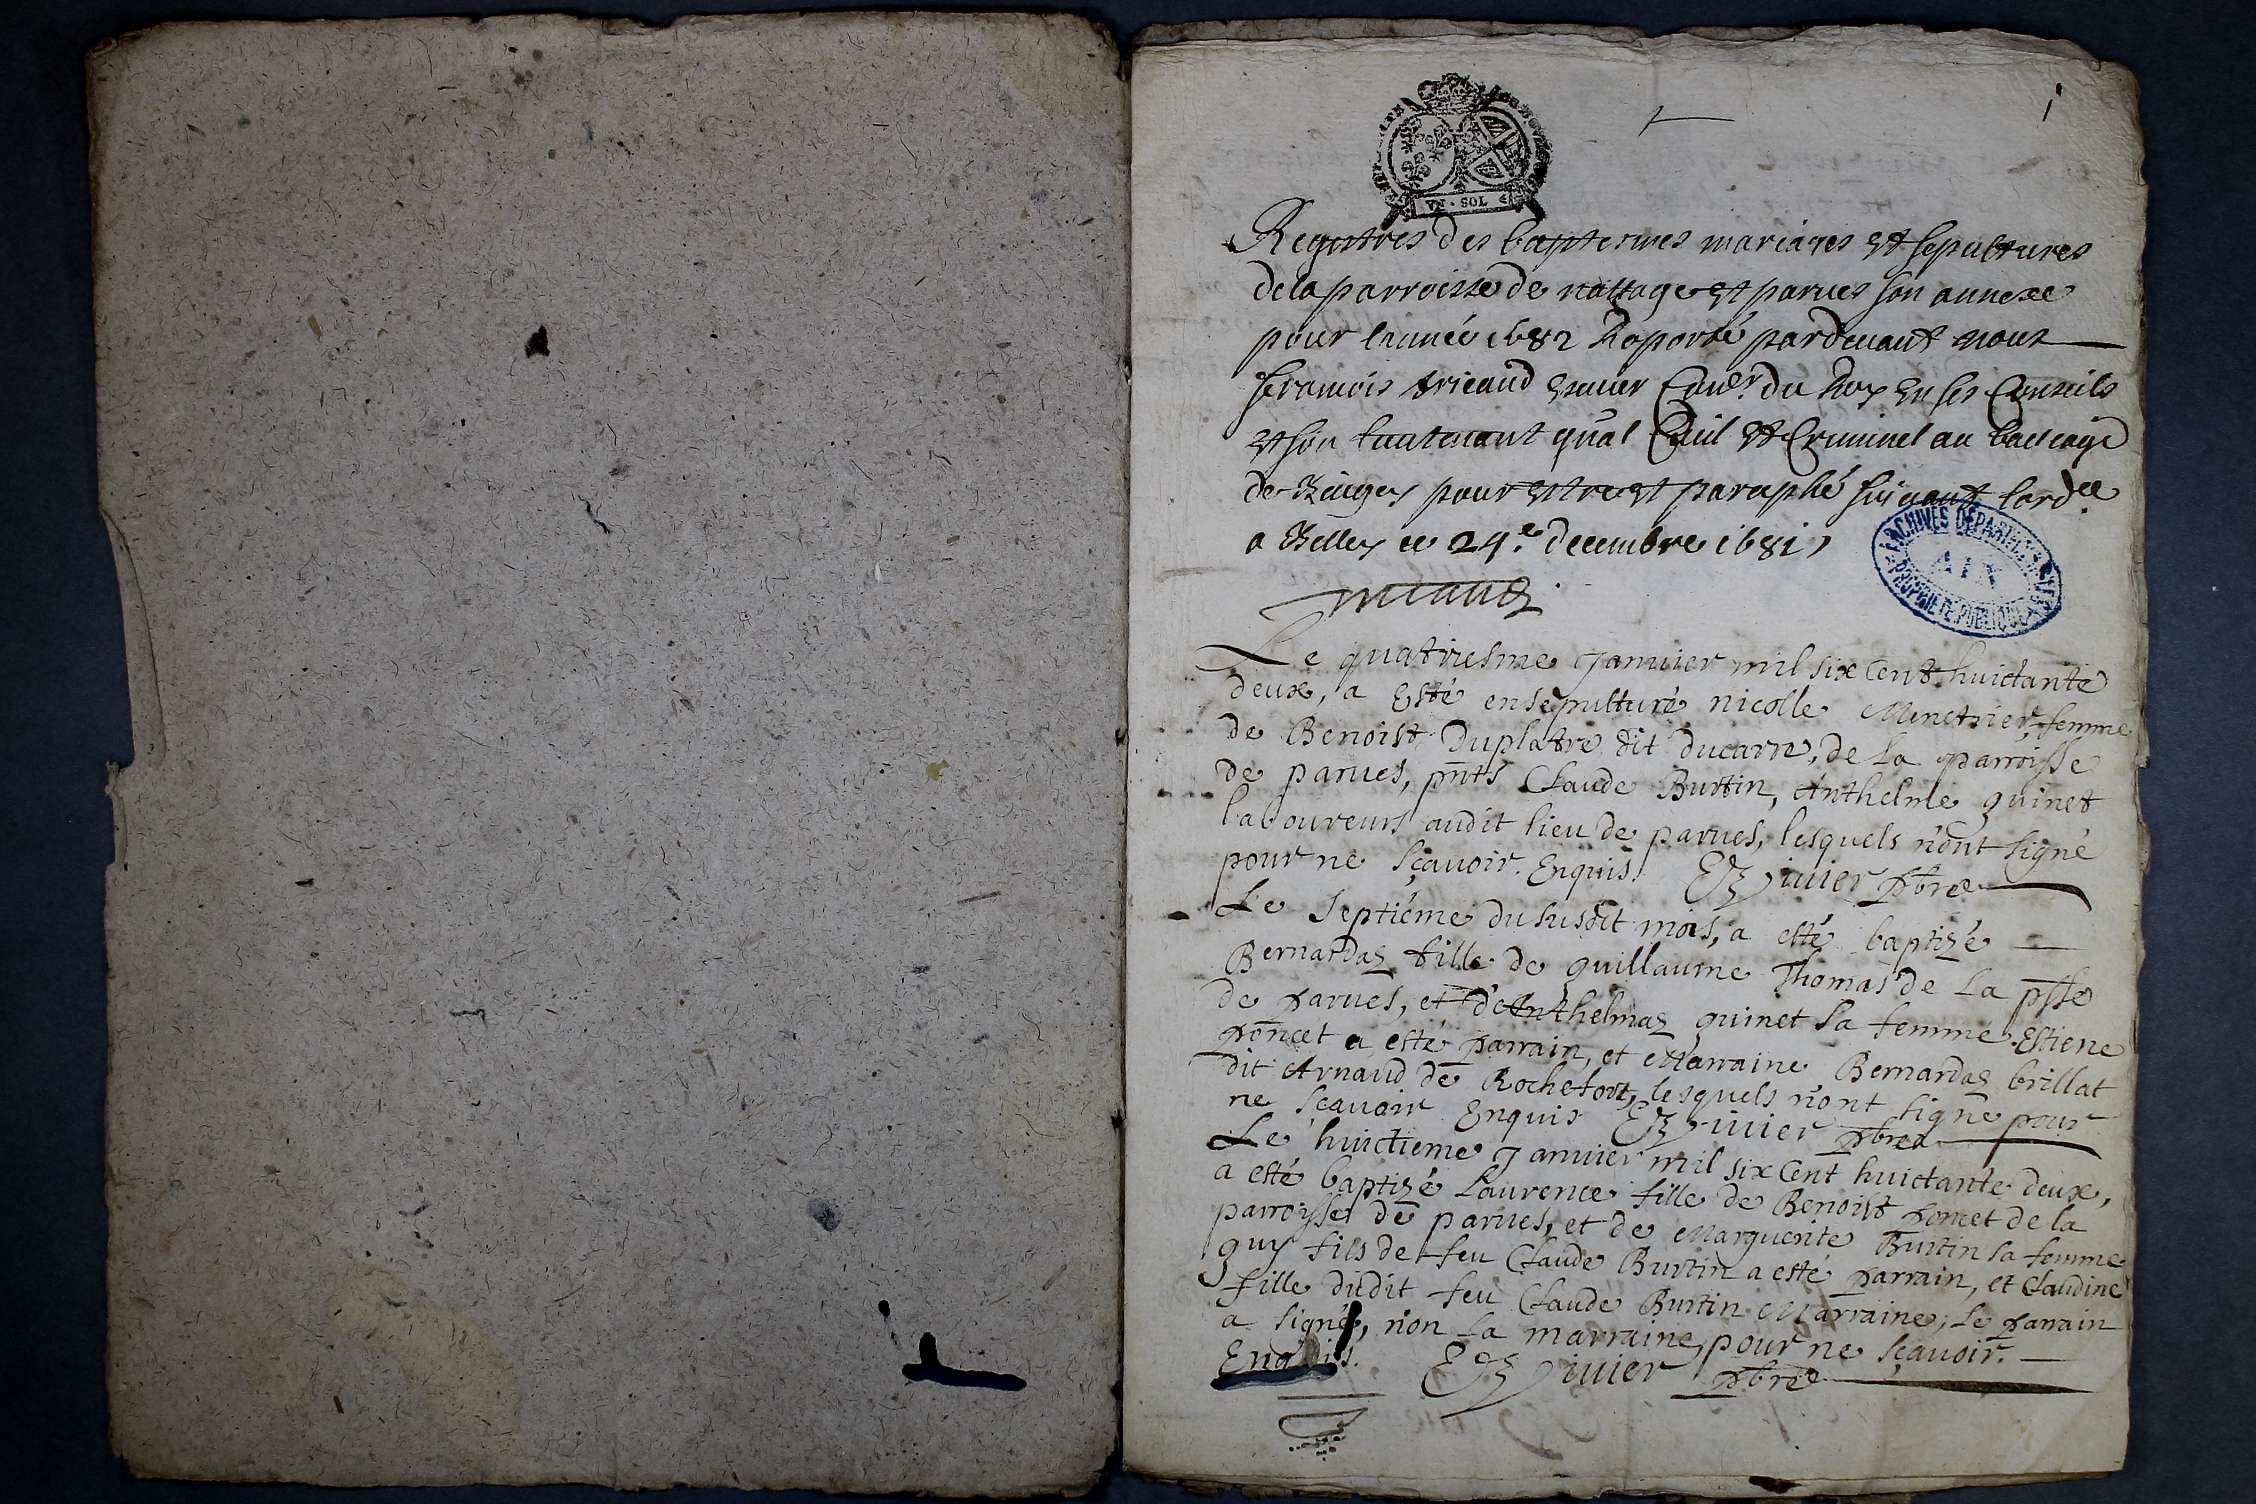 1
VN · SOL
Registres des baptesmes mariages et sepultures
de la parroisse de nattage et parves son annexe
pour lannée 1682 Raporté pardevant nous
francois tricaud escuier Conser. du Roy en ses Conseils
et son lieutenant gnal Civil et Criminel au bailliage
de Beugey pour estre et paraphé suivant lordce
a Belley ce 24.e decembre 1681,
ARCHIVES DÉPARTEMENTALES
AIN
PROPRIÉTÉ PUBLIQUE
tricaud
Le quatriesme Janvier mil six Cent huictante
deux, a Esté ensepulturé nicolle Menetrier femme
de Benoist Duplatre dit ducarre, de La parroisse
de parves, pnts Claude Burtin, Anthelme quinet
laboureurs audit lieu de parves, lesquels n'ont signé
pour ne sçavoir. Enquis. vivier pbre
Le Septiéme du susdit mois, a esté baptizé
Bernarda fille de guillaume Thomas de La psse
de parves, et d'Anthelma quinet sa femme. Estiene
poncet a esté parrain, et Marraine Bernarda brillat
dit Arnaud de Rochefort, lesquels n'ont signé pour
ne sçavoir Enquis vivier pbre
Le huictieme Janvier mil six Cent huictante deux,
a esté baptizé Laurence fille de Benoist poncet de la
parroisse de parves, et de Marguerite Burtin sa femme
guy fils de feu Claude Burtin a esté parrain, et Claudine
fille dudit feu Claude Burtin Marraine; Le parrain
a signé, non La marraine, pour ne sçavoir.
Enquis. vivier pbre